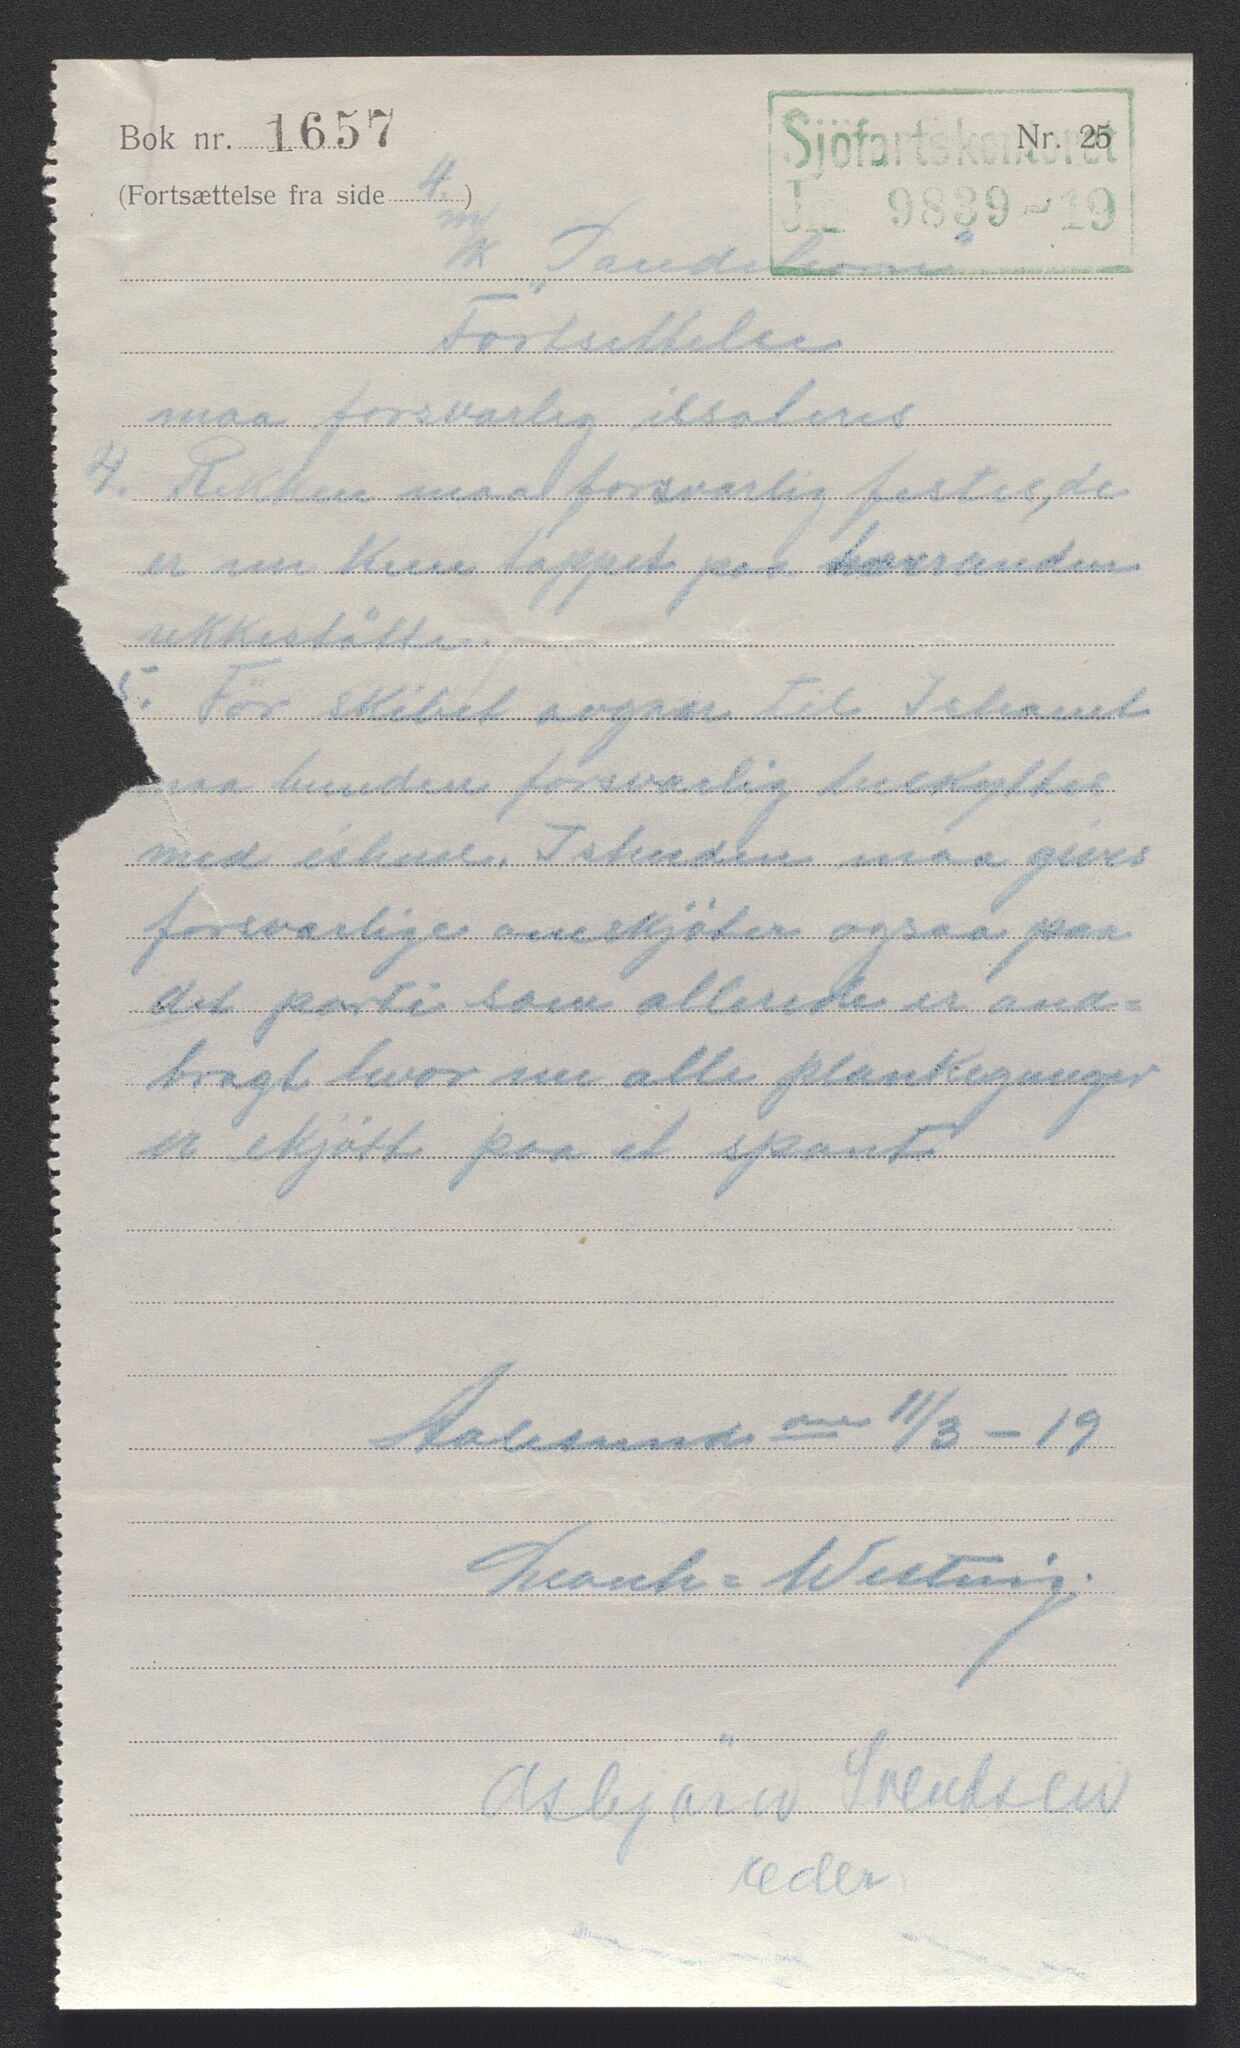 Bok nr. 1657
Nr. 25
Sjöfartskontoret
Jnr 9839-19
(Fortsættelse fra side 4.)
m/k
Fortsettelse
maa forsvarlig issoleres
4. Rekken maa forsvarlig festes, de
er nu kun tappet paa hverandre
rekkestötte.
5. För skibet avgaar til Ishavet
maa bunden forsvarlig beskyttes
med ishud. Ishuden maa gives
forsvarlige omskjöter ogsaa paa
det parti som allerede er and=
bragt hvor nu alle plankeganger
er skjött paa et spant.
Aalesund den 11/3 - 19
Asbjörn Svendsen
reder